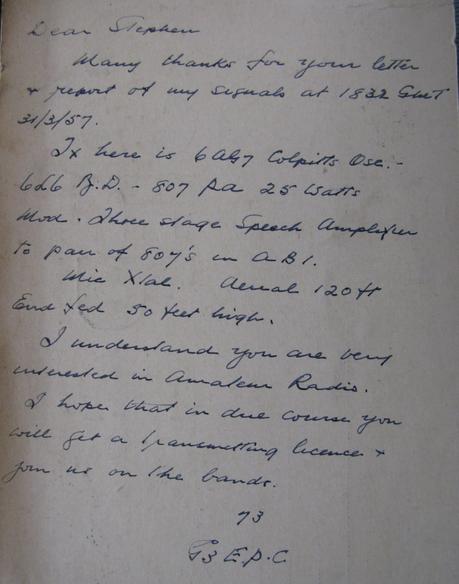 Dear Stephen
Many thanks for your letter
+ report of my signals at 1832 GMT
31/3/57.
Tx here is 6AG7 Colpitts Osc. -
6L6 B.D. - 807 PA 25 Watts
Mod. Three stage Speech Amplifier
to pair of 807's in AB1.
Mic Xtal. Aerial 120 ft
End fed 50 feet high.
I understand you are very
interested in Amateur Radio.
I hope that in due course you
will get a transmitting licence +
join us on the bands.
73
G3E.P.C